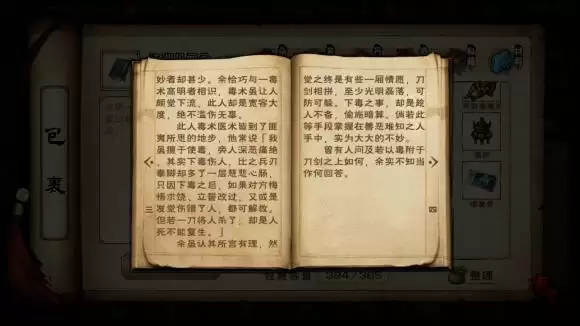 妙者却甚少。余恰巧与一毒
术高明者相识，毒术虽让人
颇觉下流，此人却是宽容大
度，绝不滥伤无辜。
此人毒术医术皆到了匪
夷所思的地步，他常说「我
虽擅于使毒，旁人深恶痛绝
，其实下毒伤人，比之兵刃
拳脚却多了一层慈悲心肠，
只因下毒之后，如果对方悔
悟求饶、立誓改过，又或是
发觉伤错了人，都可解救。
但若一刀将人杀了，却是人
死不能复生。」
余虽认其所言有理，然
三
觉之终是有些一厢情愿，刀
剑相拼，至少光明磊落，可
防可躲。下毒之事，却是趁
人不备，偷施暗算。倘若此
等手段掌握在善恶难知之人
手中，实为大大的不妙。
曾有人问及若以毒附于
刀剑之上如何，余实不知当
作何回答。
四
包裹
整理